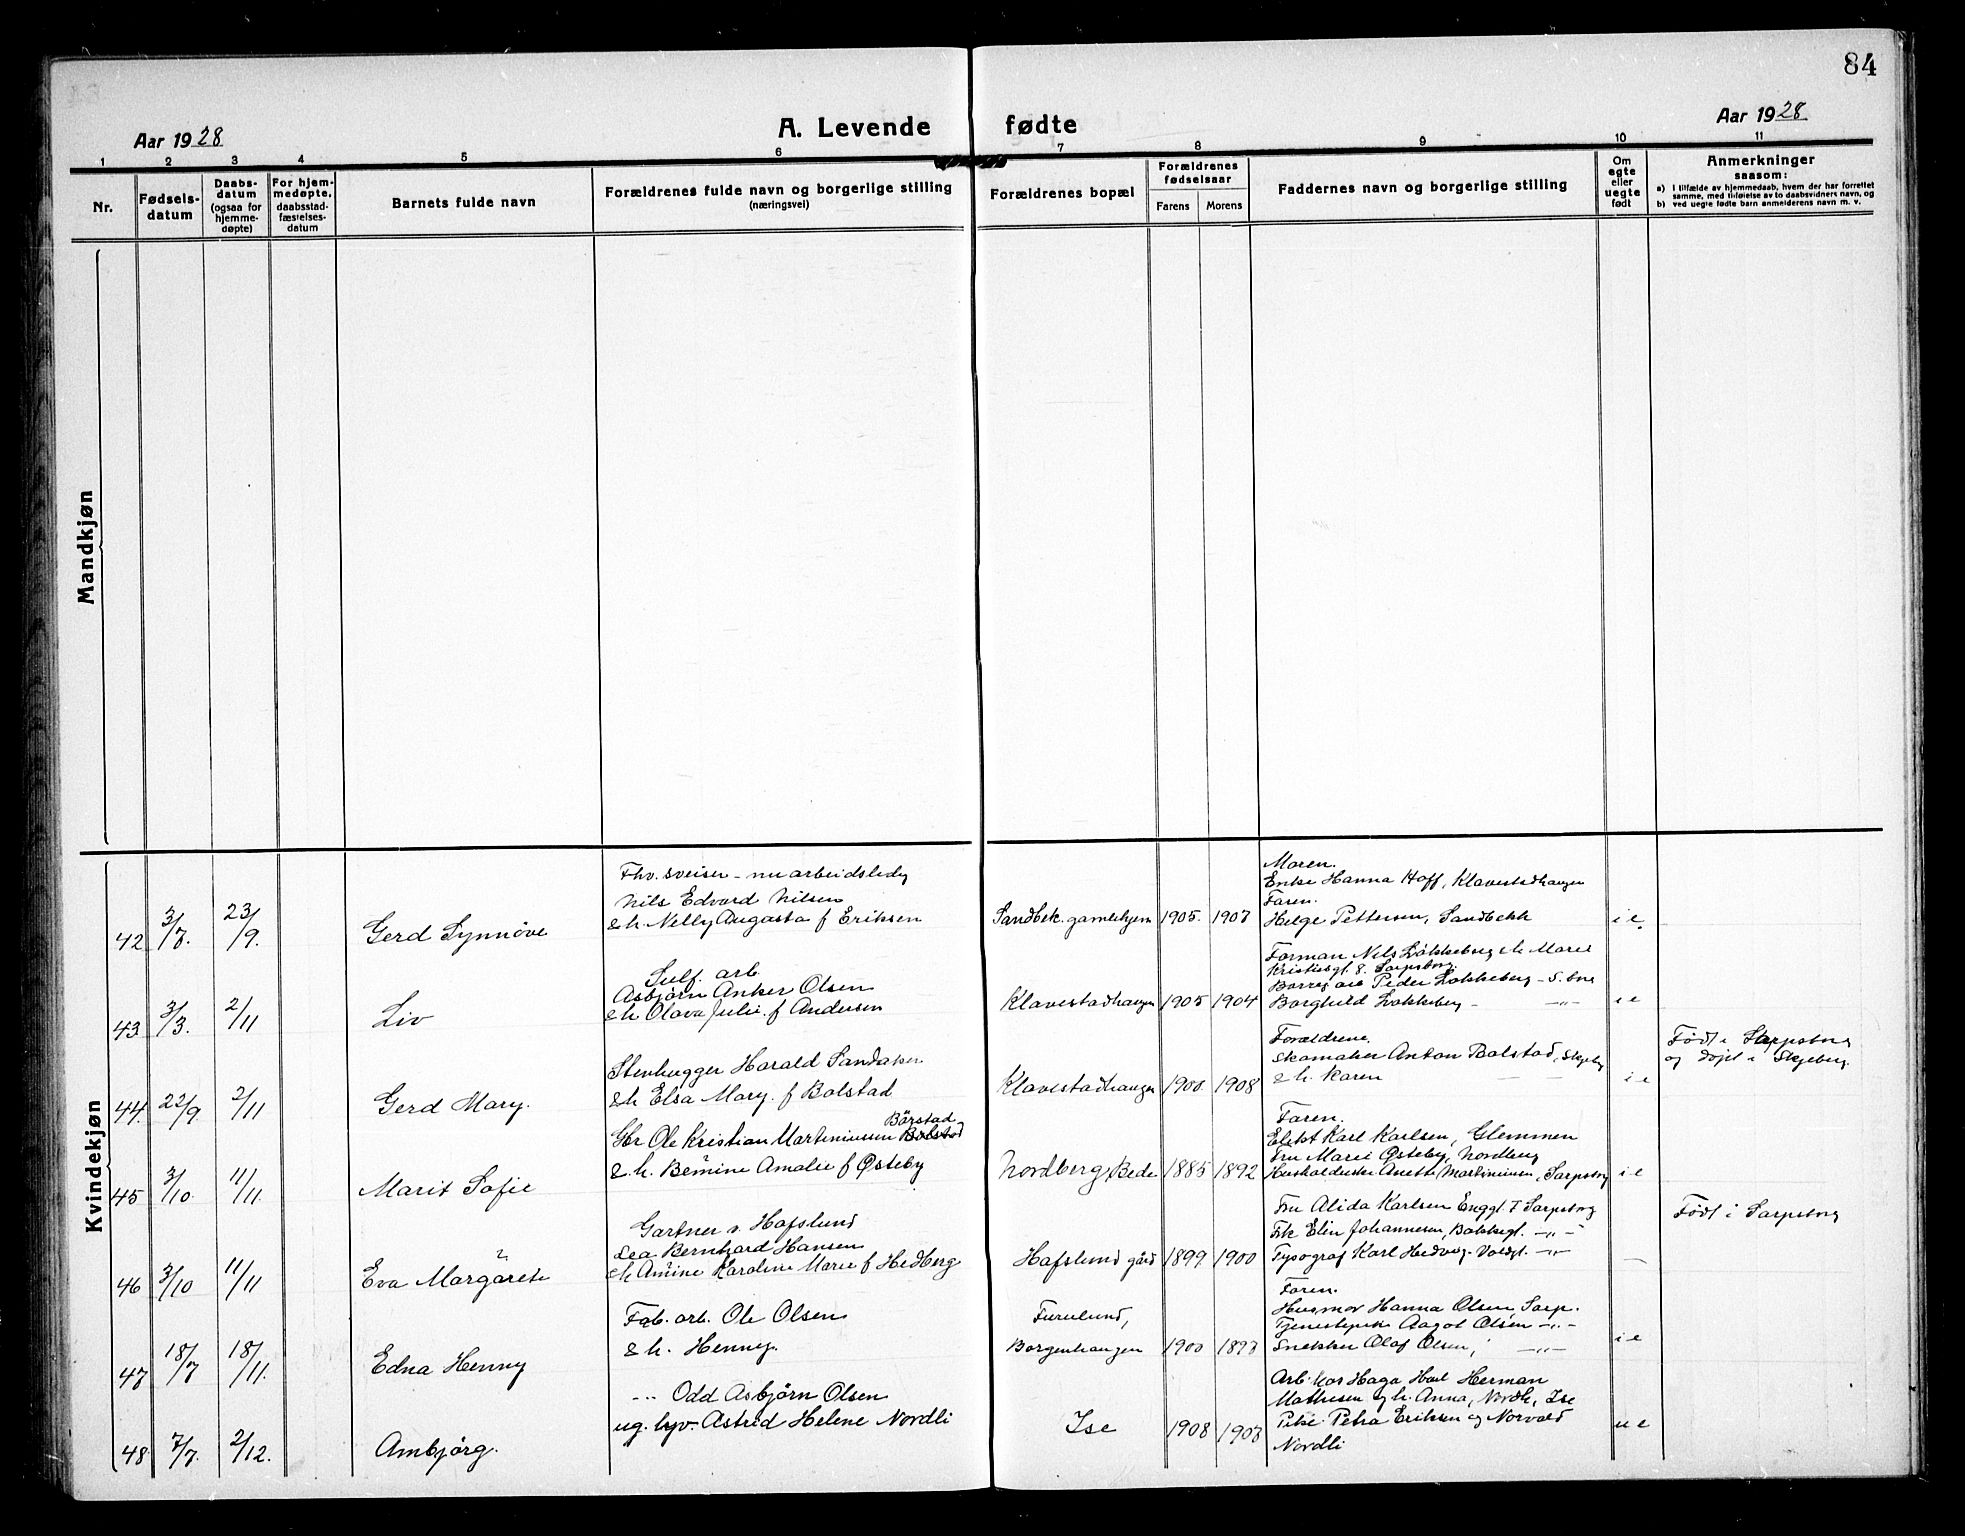 84
Aar 1928
A. Levende fødte
Aar 1928
1 2 3 4 5 6 7 8 9 10 11
Nr.
Fødsels-
datum
Daabs-
datum
(ogsaa for
hjemme-
døpte)
For hjem-
medøpte,
daabsstad-
fæstelses-
datum
Barnets fulde navn
Forældrenes fulde navn og borgerlige stilling
(næringsvei)
Forældrenes bopæl
Forældrenes
fødselsaar
Farens Morens
Faddernes navn og borgerlige stilling
Om
egte
eller
uegte
født
Anmerkninger
saasom:
a) I tilfælde av hjemmedaab, hvem der har forrettet
samme, med tilføielse av to daabsvidners navn, og
b) ved uegte fødte barn anmelderens navn m. v.
Mandkjøn
Kvindekjøn
42 3/7. 23/9. Gerd Synnöve
Fhv. sveiser - nu arbeidsledig
Nils Edvard Nilsen
& h. Nelly Augusta f Eriksen
Sandbek. gamlehjem 1905. 1907
Moren.
Enke Hanna Hoff, Klavestadhaugen
Faren.
Helge Pettersen, Sandbekk
i e.
43 3/3. 2/11 Liv
Sulf. arb.
Asbjörn Anker Olsen
& h Olava Julie f Andersen
Klavestadhaugen 1905 1904
Forman Nils Lökkeberg & h Marie
Kristiesgt. 8. Sarpsborg
Borreg arb Peder Lökkeberg - S. borg
Borghild Lökkeberg - -"-
i e
44. 22/9. 2/11 Gerd Mary.
Stenhugger Harald Sandaker
& h Elsa Mary. f Bolstad
Klavestadhaugen 1900. 1908
Forældrene.
Skomaker Anton Bolstad, Skjeberg
& h. Karen — —
i e
Født i Sarpsborg
og døpt i Skjeberg.
45 3/10. 11/11. Marit Sofie
Börstad
Gbr Ole Kristian Martiniussen Bolstad
& h. Bernine Amalie f Østeby
Nordberg Bede 1885 1892
Faren.
Elekt Karl Karlsen, Glemmen
Fru Marie Østeby, Nordberg
Husholderske Anette Martiniusen, Sarpsborg
i e
46 3/10 11/11 Eva Margarete
Gartner v. Hafslund
Lea Bernhard Hansen
& h Amine Karoline Marie f Hedberg
Hafslund gård 1899. 1900
Fru Alida Karlsen Enggt. 7 Sarpsborg
Frk Elin Johannesen, Bakkegt. -"-
Typograf Karl Hedberg. Voldgt. -"-
—
Født i Sarpsborg
47 18/7 18/11. Edna Henny
Fab. arb. Ole Olsen
& h. Henny.
Furulund,
Borgenhaugen 1900 1897
Faren.
Husmor Hanna Olsen, Sarp.
Tjenestepike Aagot Olsen -"-
Snekker Olaf Olsen, -"-
i e
48 7/7. 2/12. Ambjörg.
-"- Odd Asbjörn Olsen
ug. hjv. Astrid Helene Nordli
Ise 1908 1907
Arb. Haga Karl Herman
Mathisen og h. Anna, Ise
Pike Petra Eriksen og Norvald
Nordli
u e